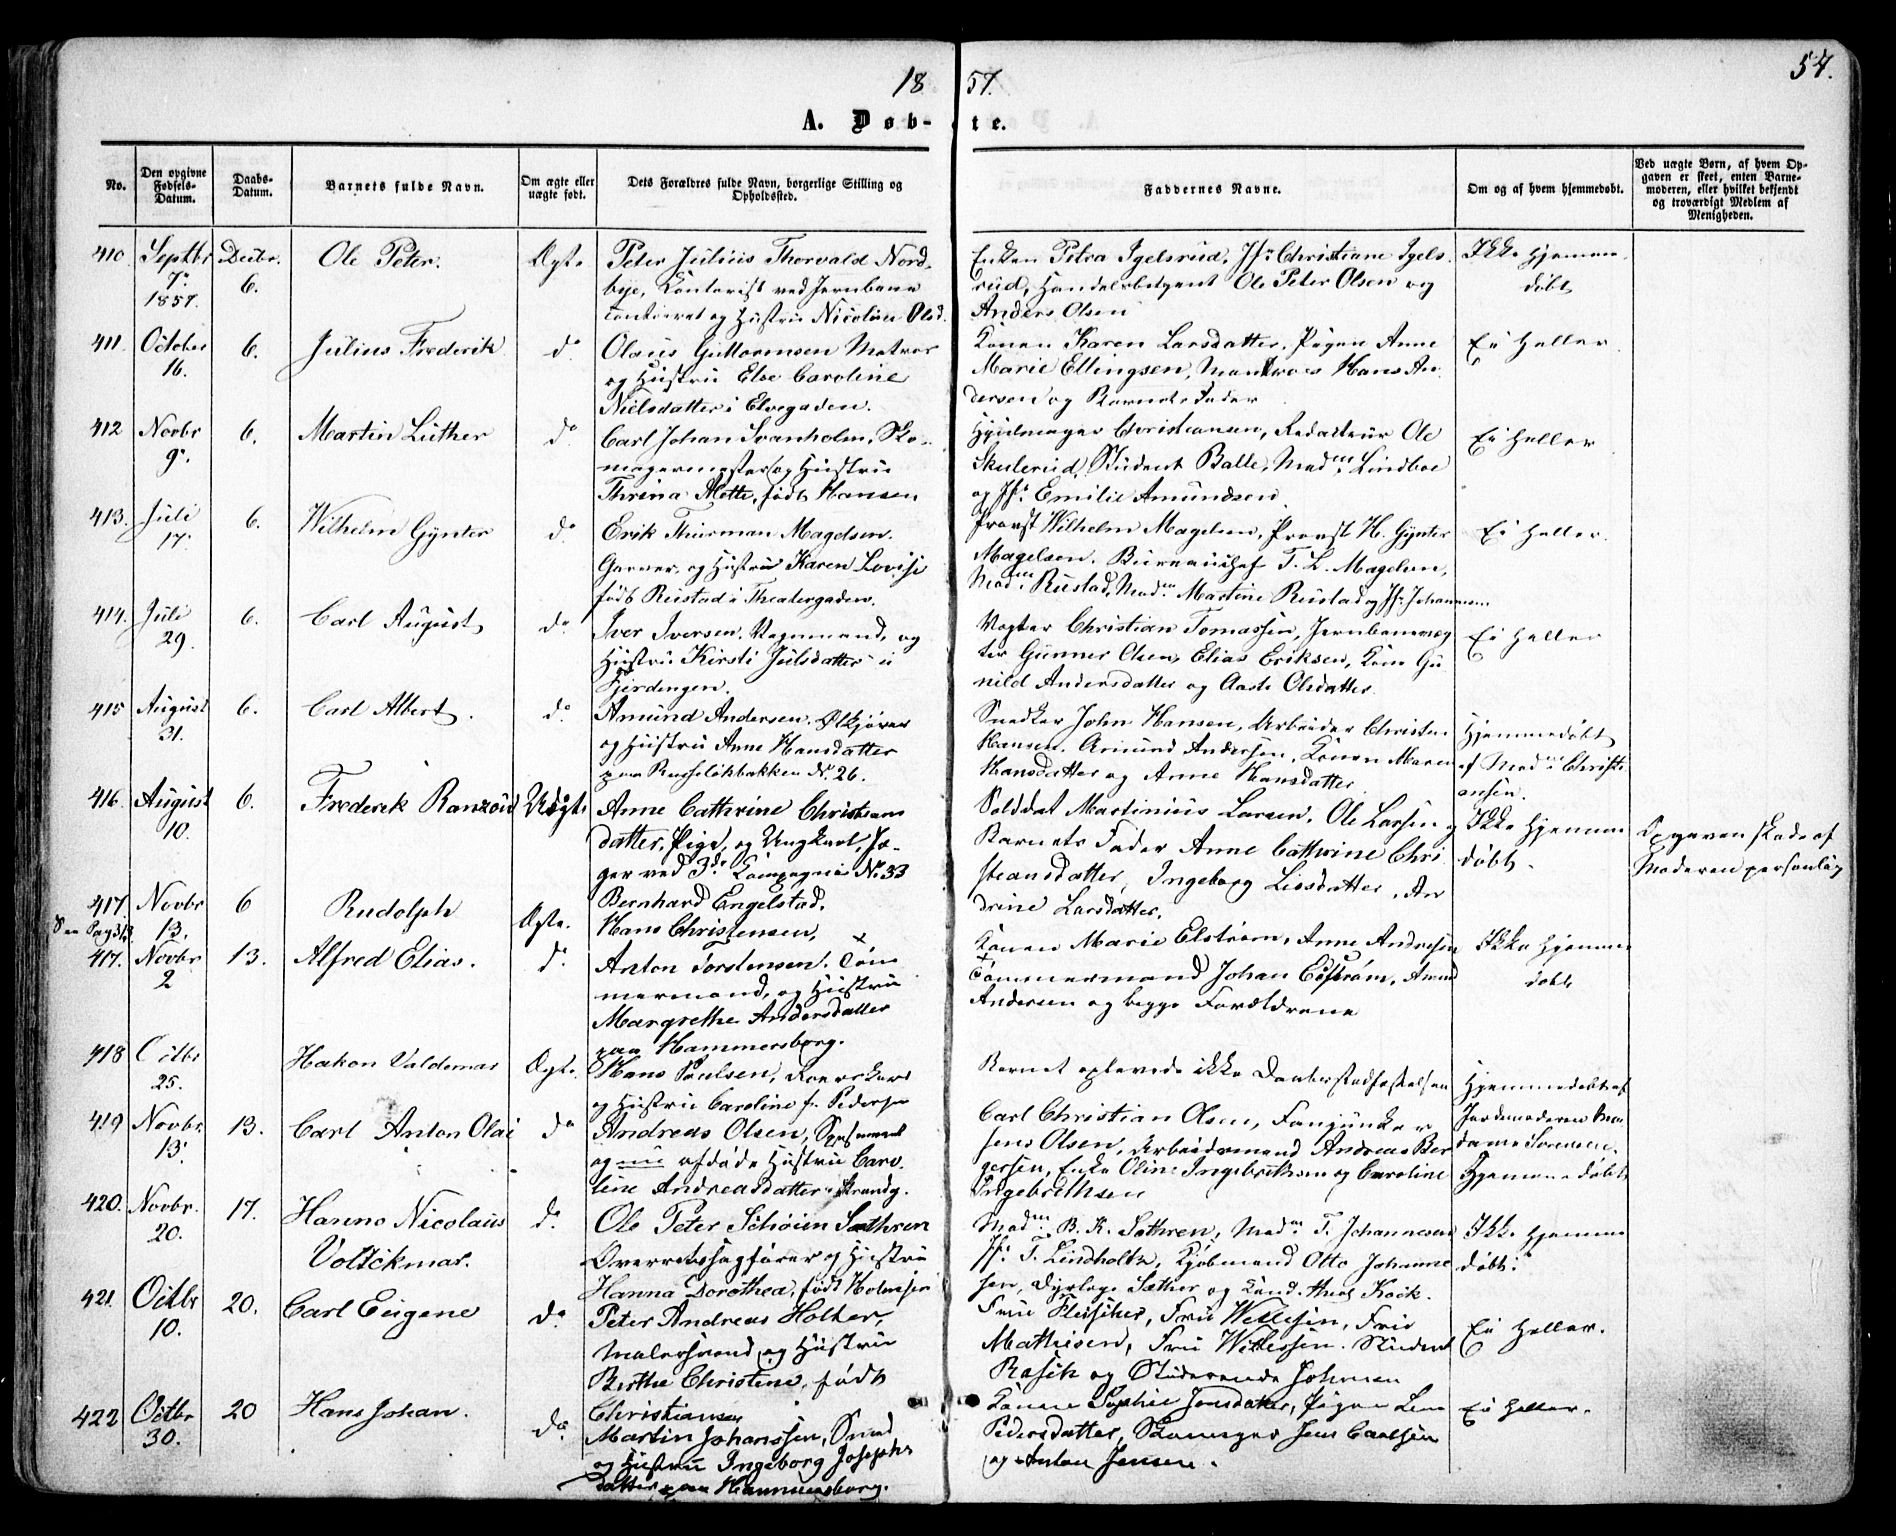 1857.
57.
A. Døbte.
No.
Den opgivne Fødsels-Datum.
Daabs-Datum.
Barnets fulde Navn.
Om ægte eller uægte født.
Dets Forældres fulde Navn, borgerlige Stilling og Opholdssted.
Faddernes Navne.
Om og af hvem hjemmedøbt.
Ved uægte Børn, af hvem Opgaven er skeet, enten Barnemoderen, eller hvilket bekjendt og troværdigt Medlem af Menigheden.
410 Septbr 7. 1857. Decbr. 6. Ole Peter. Ægte
Peter Julius Thorvald Nord-
bye, Contorist ved Jernbane
contoret og Hustru Nicoline Olsd.
Enken Petra Igelsrud, Jfr Christiane Igels-
rud, Handelsbetjent Ole Peter Olsen og
Anders Olsen
Ikke hjemme-
døbt
411. October 16. 6. Julius Frederik do
Olaus Guttormsen Matros
og Hustru Else Caroline
Nielsdatter i Elvegaden.
Konen Karen Larsdatter, Pigen Anne
Marie Ellingsen, Hans An-
dersen og Barnets Fader
Ei heller
412 Novbr 9. 6. Martin Luther do
Carl Johan Svanholm, Sko-
magermester og Hustru
Thrina Mette, født Hansen
Hjulmager Christiansen, Redacteur Ole
Skulerud, Student Balle, Madm Lindboe
og Jfr Emilie Amundsen
Ei heller
413. Juli 17. 6. Wilhelm Gynter do
Erik Thurman Magelsen.
Garver, og Hustru Karen Lovise
født Rustad i Theatergaden.
Provst Wilhelm Magelsen, Provst H. Gynter
Magelsen, Bureauchef T. L. Magelsen,
Madm Rustad, Madm Martine Rustad og Jfr Johannesen
Ei heller.
414. Juli 29. 6. Carl August do
Iver Iversen, Vognmand, og
Hustru Kirsti Julsdatter i
Fjerdingen.
Vogter Christian Tomassen, Jernbanevog-
ter Gunner Olsen, Elias Eriksen, Kone Gu-
nild Andersdatter og Aaste Olsdatter.
Ei heller
415 August 31. 6. Carl Albert. do
Amund Andersen. Ølkjører
og Hustru Anne Hansdatter
paa Russeløkbakken No. 26.
Snedker John Hansen, Arbeider Christen
Hansen, Amund Andersen, Konen Maren
Hansdatter og Anne Hansdatter
Hjemmedøbt
af Madm Christi-
ansen.
416. August 10. 6. Frederik Ranzou Uægte
Anne Cathrine Christians-
datter, Pige, og Ungkarl, Jæ-
ger ved 3de Compagnie No 33
Bernhard Engelstad.
Soldat Martinius Larsen, Ole Larsen og
Barnets Fader Anne Cathrine Chri-
stiansdatter, Ingeborg Larsdatter, An-
drine Larsdatter.
Ikke hjemme
døbt.
Opgaven skede af
Moderen personlig
417. Novbr 13. 6 Rudolph Ægte.
Hans Christensen,
417. Novbr 2 13. Alfred Elias. do
Anton Torstensen. Tøm-
mermand, og Hustru
Margrethe Andersdatter
paa Hammersborg.
Konen Marie Elstrøm, Anne Andresen
Tømmermand Johan Elstrøm, Amund
Andersen og begge Forældrene
Ikke hjemme
døbt
418 Octbr 25. Hakon Valdemar Ægte.
Hans Paulsen,
og Hustru Caroline f. Pedersen
Barnet oplevede ikke Daabsstadfæstelsen
Hjemmedøbt af
Jordemoderen Ma-
dame Sørensen.
419 Novbr. 13. 13. Carl Anton Olai do
Andreas Olsen,
og nu afdøde Hustru Caro-
line Andreasdatter i Strandg.
Carl Christian Olsen, Fanejunker
Jens Olsen, Arbeidsmand Andreas Ber-
gersen, Enke Oline Ingebrigtsen og Caroline
Ingebrethsen
Hjemmedøbt
420. Novbr. 20. 17. Hanno Nicolaus
Voltckmar. do
Ole Peter Schøien Sathren
Overretssagfører og Hustru
Hanna Dorothea, født Holmsen
Madm B. K. Sathren, Madm T. Johannesen
Jfr T. Lindholtz, Kjøbmand Otto Johanne-
sen, Dyrlæge Sather og Cand. theol Koik.
Ikke hjemme
døbt.
421. Octbr 10. 20. Carl Eugene do
Peter Andreas Holter,
Malersvend, og Hustru
Berthe Christine, født
Christiansen
Fru Fleischer, Fru Willesen, Fru
Mathisen, Fru Willessen. Student
Rasch og Studerende Johnsen
Ei heller.
422 Octbr 30. 20 Hans Johan. do
Martin Johanssen, Smed
og Hustru Ingeborg Josephs-
datter paa Hammersborg.
Konen Sophie Jonsdatter, Pigen Lene
Pedersdatter, Skomager Jens Carlsen
og Anton Jensen.
Ei heller.